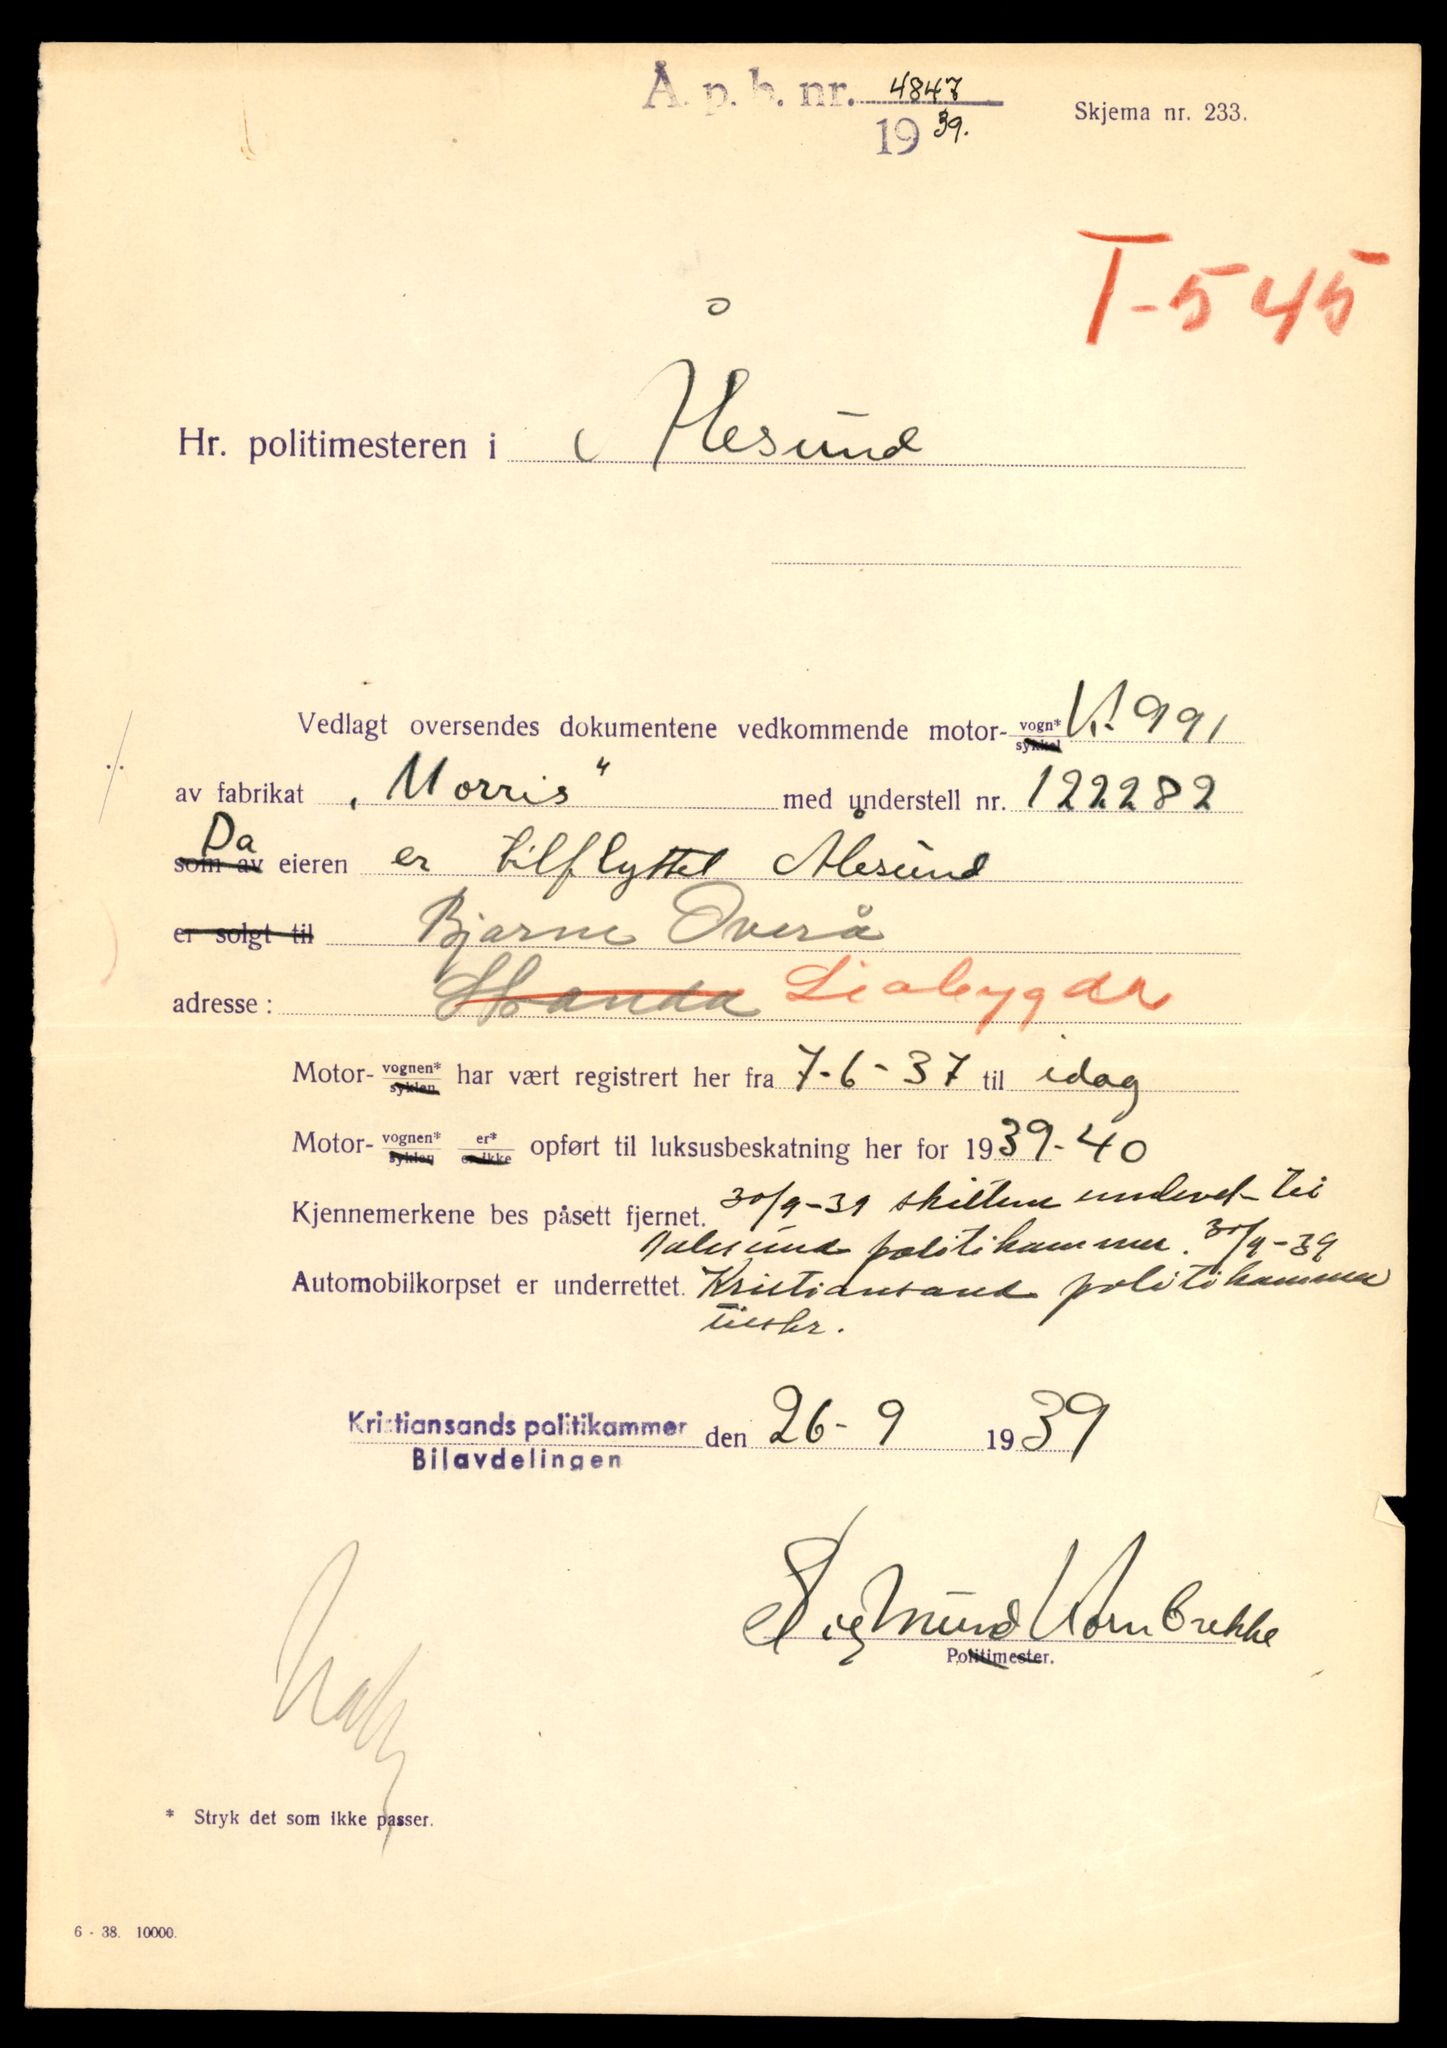 Å. p. b. nr. 4847
1939.
Skjema nr. 233.
T-545
Hr. politimesteren i Ålesund
Vedlagt oversendes dokumentene vedkommende motor- vogn* sykkel K. 991
av fabrikat „Morris" med understell nr. 122282
Da
som av eieren er tilflyttet Ålesund
er solgt til Bjarne Overå
adresse: Stranda Liabygda
Motor- vognen* syklen har vært registrert her fra 7-6-37 til idag
Motor- vognen* syklen er* er ikke opført til luksusbeskatning her for 1939-40
Kjennemerkene bes påsett fjernet. 30/9-39 skiltene til
politikammer. 30/9-39
Automobilkorpset er underrettet. Kristiansand politikammer
tilskr.
Kristiansands politikammer den 26-9 1939
Bilavdelingen
Sigmund Kornbrekke
Politimester.
* Stryk det som ikke passer.
6 - 38. 10000.